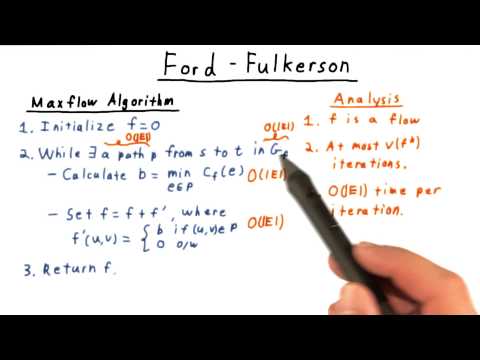 Ford - Fulkerson
Maxflow Algorithm
1. Initialize f=0
O(|E|)
O(|E|)
2. While ∃ a path p from s to t in G_f
- Calculate b = min c_f(e) O(|E|)
e∈p
- Set f = f + f', where
f'(u,v) = { b if (u,v)∈p O(|E|)
0 o/w
3. Return f.
Analysis
1. f is a flow
2. At most v(f*)
iterations.
O(|E|) time per
iteration.